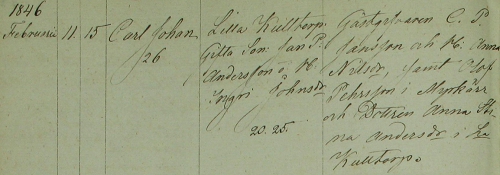 1846
Februarii 11. 15 Carl Johan
/26
Lilla Kulltorp.
Gifta Son. Jan P.
Andersson o. H.
Ingri Johnsdr
20. 25.
Gästgifvaren C. P.
Jansson och H. Anna
Nilsdr, samt Olof
Pehrsson i Myrkärr
och Dotteren Anna Sti-
na Andersdr i L:a
Kulltorp.